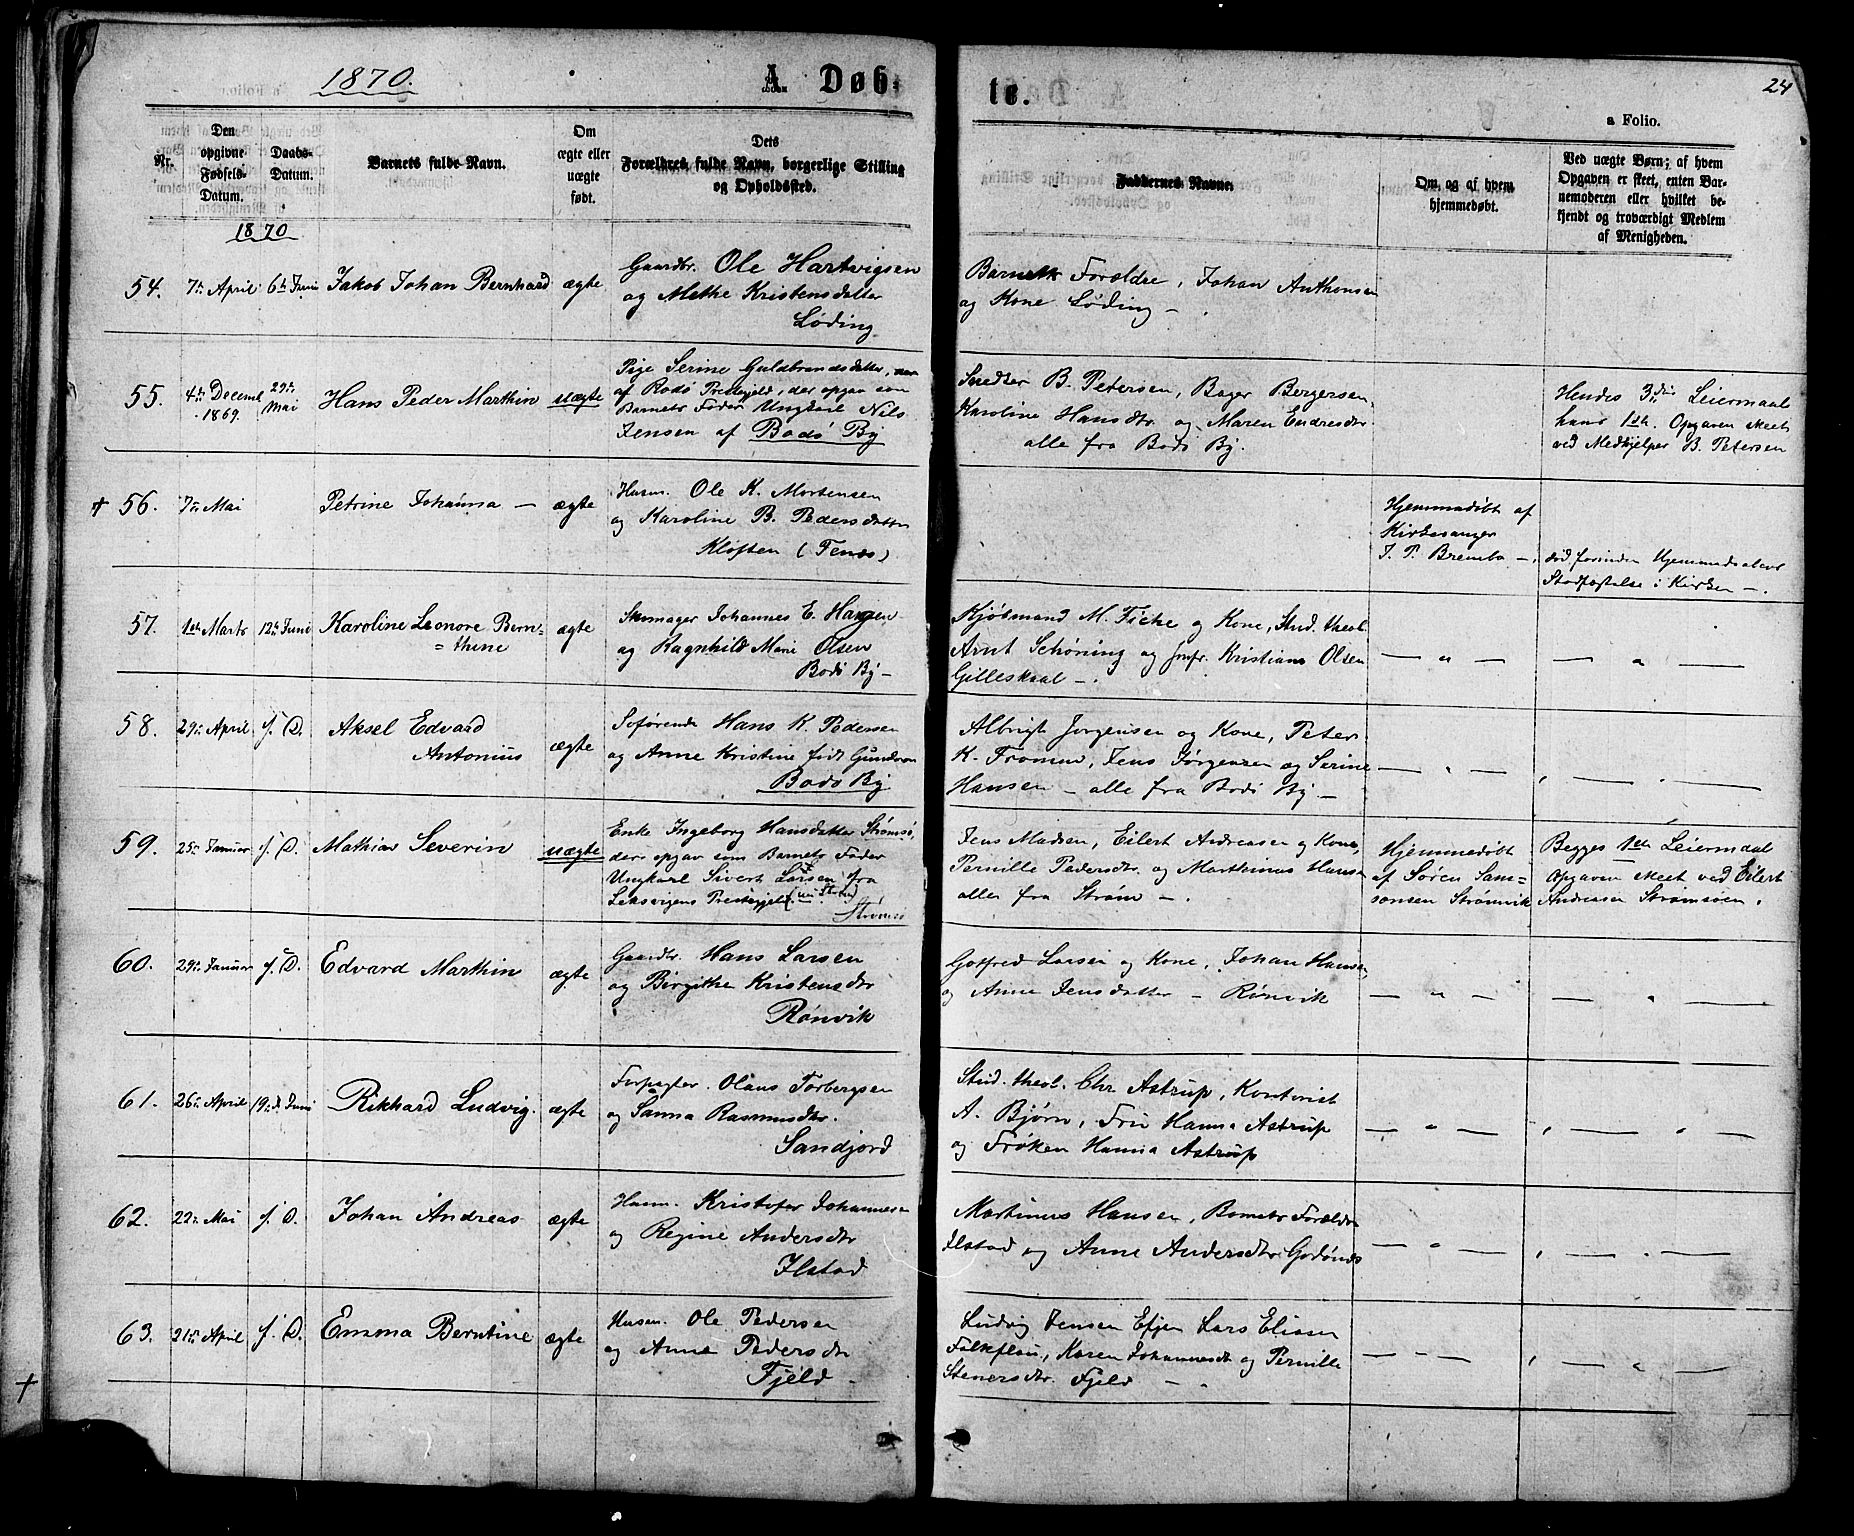 1870.
A Døb-
te.
24
a Folio.
Nr.
Den opgivne Fødsels-Datum.
Daabs-Datum.
Barnets fulde Navn.
Om ægte eller uægte født.
Dets Forældres fulde Navn, borgerlige Stilling og Opholdssted.
Faddernes Navne.
Om og af hvem hjemmedøbt.
Ved uægte Børn; af hvem Opgaven er skeet, enten Bar-nemoderen eller hvilket be-kjendt og troværdigt Medlem af Menigheden.
1870
54. 7de April 6te Juni Jakob Johan Bernhard ægte
Gaardbr. Ole Hartvigsen
og Methe Kristensdatter
Løding
Barnets Forældre, Johan Anthonsen
og Kone Løding —
55. 4de Decembr 1869. 29de Mai Hans Peder Marthin uægte
Pige Serine Guldbrandsdatter,
af Rødø Prestegjeld, der opgav som
Barnets Fader Ungkarl Nils
Jensen af Bodø By
Snedker B. Petersen, Bager Bergersen,
Karoline Hansdtr og Maren Endresdtr
alle fra Bodø By.
Hendes 3die Leiermaal
hans 1ste. Opgaven skeet
ved Medhjelper B. Petersen
† 56. 7de Mai Petrine Johanna — ægte
Husm. Ole K. Mortensen
og Karoline B. Pedersdatter
Kløften (Tenes)
Hjemmedøbt af
Kirkesanger
J. P. Brembo —.
død forinden Hjemmedaabens
Stadfæstelse i Kirken —.
57. 1ste Marts 12te Juni Karoline Leonore Bern=
=thine ægte
Skomager Johannes E. Hagen
og Ragnhild Marie Olsen
Bodø By —
Kjøbmand M. Ficke og Kone, Stud. theol.
Arnt Schøning og Jmfr. Kristiane Olsen
Gilleskaal —.
— " —
— " —
58. 29de April s. D. Aksel Edvard
Antonius ægte
Soførende Hans K. Pedersen
og Anne Kristine født
Bodø By
Albrigt Jørgensen og Kone, Peter
K. Fromm, Jens Jørgensen og Serine
Hansen — alle fra Bodø By —
— " —
59. 25de Januar s. D. Mathias Severin uægte
Enke Ingeborg Hansdatter Strømsø,
der opgav som Barnets Fader
Ungkarl Sivert Larsen fra
Leksvigens Prestegjeld
Strømsø
Jens Madsen, Eilert Andreasen og Kone,
Pernille Pedersdtr. og Marthinus Hansen
alle fra Strøm —.
Hjemmedøbt
af Søren Sam=
sonsen Strømvik
Begges 1ste Leiermaal
Opgaven skeet ved Eilert
Andreasen Strømsøen.
60. 29de Januar s. D. Edvard Marthin ægte
Gaardbr. Hans Larsen
og Birgithe Kristensdtr
Rønvik
Gotfred Larsen og Kone, Johan Hansen,
og Anne Jensdatter — Rønvik
— " —
— " —
61. 26de April 19de Juni Rikhard Ludvig. ægte
Forpagter. Olaus Torbergsen
og Sanna Rasmusdtr.
Sandjord
Stud. theol. Chr. Astrup, Kontorist
A. Bjørn, Fru Hanna Astrup
og Frøken Hanna Astrup
— " —
62. 22de Mai s. D. Johan Andreas ægte
Husm. Kristofer Johannesen
og Regine Andersdtr
Ilstad
Martinus Hansen, Barnets Forældre
Ilstad og Anne Andersdtr. Godønes
— " —
63. 21de April s. D. Emma Berntine ægte
Husm. Ole Pedersen
og Anne Pedersdtr
Fjeld —
Ludvig Jensen Efjen Lars Eliasen
Falkflau, Karen Johannesdt og Pernille
Stenersdtr. Fjeld —.
— " —
†